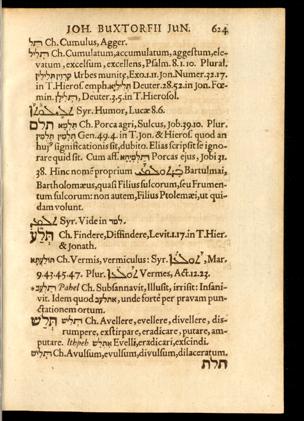 JOH. BUXTORFII JUN. 624
תל Ch. Cumulus, Agger.
תליל Ch. Cumulatum, accumulatum, aggestum, ele-
vatum, excelsum, excellens, Psalm. 8.1.10. Plural.
קרוין תלילין Urbes munitę, Exo.1.11. Jon. Numer. 32.17.
in T. Hieros. emph. Deuter. 28.52. in Jon. Fœ-
min. Deuter. 3.5. in T. Hierosol.
Syr. Humor, Luc 8.6.
תלם Ch. Porca agri, Sulcus, Job. 39.10. Plur.
תלמין Gen. 49.4. in T. Jon. & Hieros. quod an
huj⁹ significationis sit, dubito. Elias scripsit se igno-
rare quid sit. Cum aff. Porcas ejus, Job. 31.
38. Hinc nomē proprium Bartulmai,
Bartholomæus, quasi Filius sulcorum, seu Frumen-
tum sulcorum: non autem, Filius Ptolemæi, ut qui-
dam volunt.
Syr. Vide in למד.
תלע Ch. Findere, Diffindere, Levit. 1.17. in T. Hier.
& Jonath.
Ch. Vermis, vermiculus: Syr. Mar.
9.43.45.47. Plur. Vermes, Act. 12.23.
Pahel Ch. Subsannavit, Illusit, irrisit: Insani-
vit. Idem quod unde fortè per pravam pun-
ctationem ortum.
תלש Ch. Avellere, evellere, divellere, dis-
rumpere, exstirpare, eradicare, putare, am-
putare. Ithpeh Evelli, eradicari, exscindi.
תליש Ch. Avulsum, evulsum, divulsum, dilaceratum.
תלת